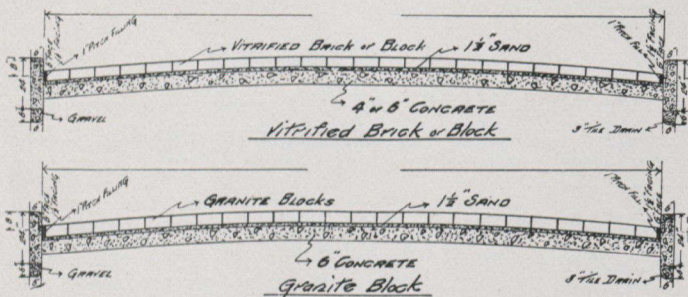 1" PITCH FILLING
VITRIFIED BRICK OR BLOCK
1½" SAND
GRAVEL
4" OR 6" CONCRETE
3" TILE DRAIN
Vitrified Brick or Block
1" PITCH FILLING
GRANITE BLOCKS
1½" SAND
GRAVEL
6" CONCRETE
3" TILE DRAIN
Granite Block